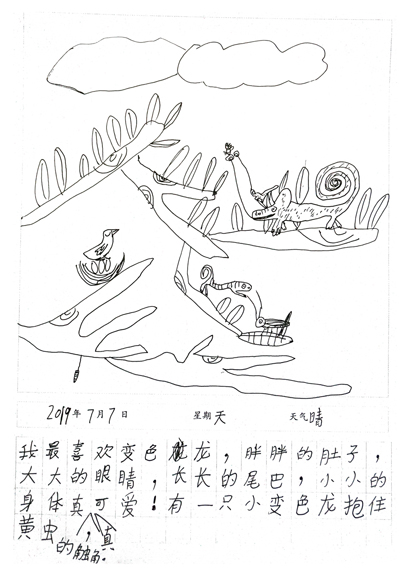 2019年7月7日 星期天 天气晴
我最喜欢变色龙，胖胖的肚子，
大大的眼睛，长长的尾巴，小小的
身体真可爱！有一只小变色龙抱住
黄虫，真
的触角